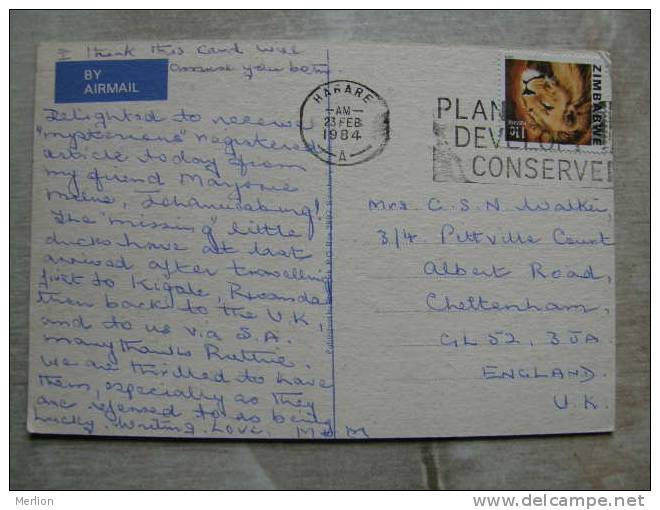 I think this card will
amuse you both
BY
AIRMAIL
Delighted to receive
"mysterious" registered
article today from
my friend Marjorie
Milne, Johannesburg!
The "missing" little
ducks have at last
arrived after travelling
first to Kigale, Rwanda
then back to the U.K,
and to us via S.A.
many thanks Ruthie.
We are thrilled to have
them, especially as they
are referred to as being
Lucky. Writing. Love. M & M
HARARE
AM
23 FEB
1984
A
PLAN
DEVELOP
CONSERVE
ZIMBABWE
11c
Mrs C. S. N. Walker,
3/4 Pittville Court
Albert Road,
Cheltenham,
GL 52, 3JA.
ENGLAND.
U.K.
Merlion
www.delcampe.net